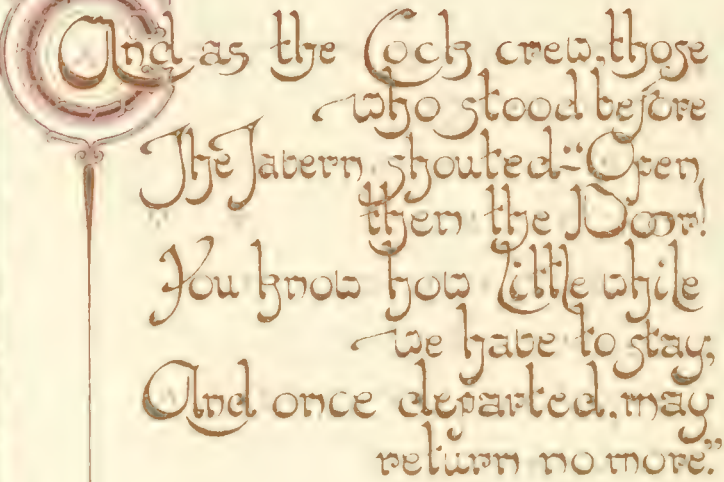 And as the Cock crew, those
who stood before
The Tavern shouted—"Open
then the Door!
You know how little while
we have to stay,
And once departed, may
return no more."